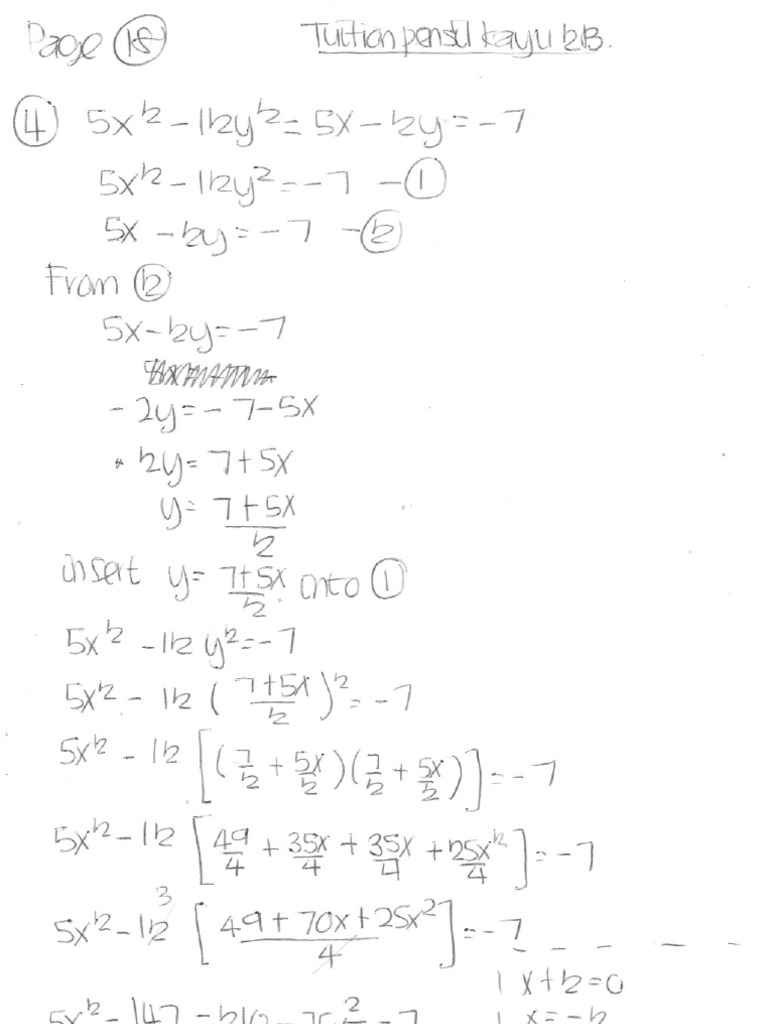 Page 18
Tuition pensil kayu 2B.
④ 5x² - 12y² = 5x - 2y = -7
5x² - 12y² = -7 - ①
5x - 2y = -7 - ②
From ②
5x - 2y = -7
- 2y = - 7 - 5x
2y = 7 + 5x
y = 7 + 5x / 2
insert y = 7 + 5x / 2 onto ①
5x² - 12 y² = -7
5x² - 12 ( 7 + 5x / 2 )² = -7
5x² - 12 [ ( 7/2 + 5x/2 ) ( 7/2 + 5x/2 ) ] = -7
5x² - 12 [ 49/4 + 35x/4 + 35x/4 + 25x²/4 ] = -7
5x² - 12 3 [ 49 + 70x + 25x² / 4 ] = -7
x + 2 = 0
5x² - 147 - 210
x = -2